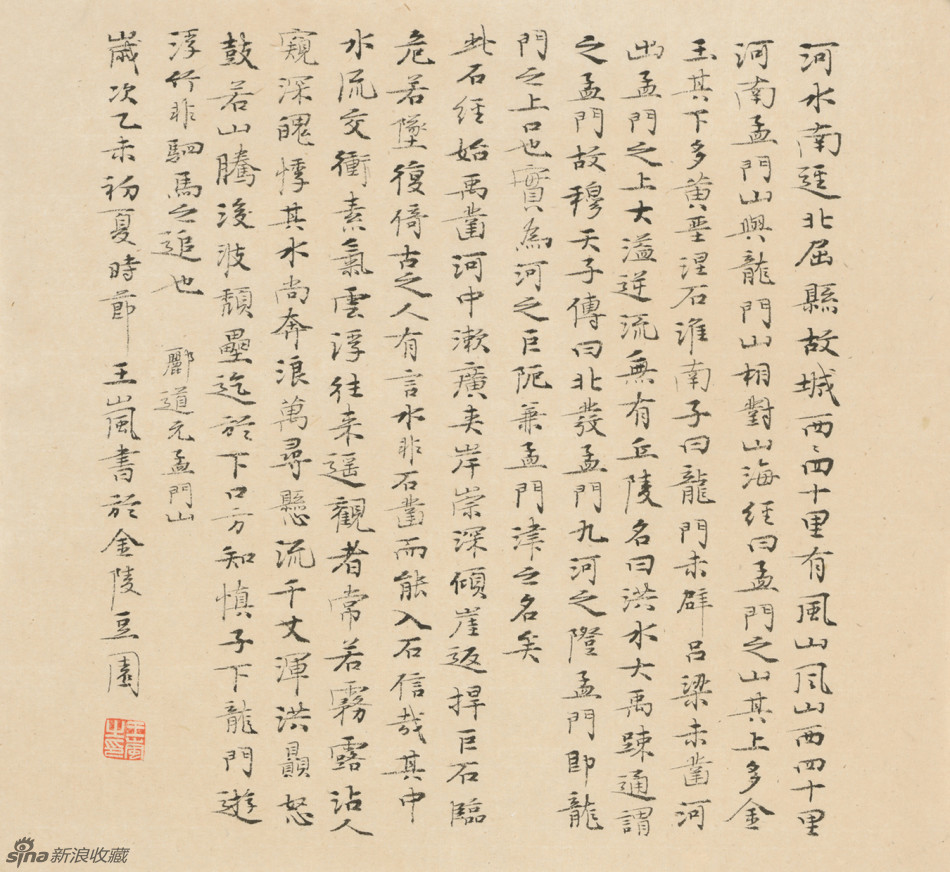 河水南逕北屈縣故城西西四十里有風山風山西四十里
河南孟門山與龍門山相對山海經曰孟門之山其上多金
玉其下多黃堊涅石淮南子曰龍門未辟呂梁未鑿河
出孟門之上大溢逆流無有丘陵名曰洪水大禹疎通謂
之孟門故穆天子傳曰北發孟門九河之隥孟門即龍
門之上口也實為河之巨阨兼孟門津之名矣
此石經始禹鑿河中漱廣夾岸崇深傾崖返捍巨石臨
危若墜復倚古之人有言水非石鑿而能入石信哉其中
水流交衝素氣雲浮往来遥觀者常若霧露沾人
窺深魄悸其水尚奔浪萬尋懸流千丈渾洪贔怒
鼓若山騰浚波頹壘迄於下口方知慎子下龍門遊
浮竹非駟馬之追也 酈道元孟門山
歲次乙未初夏時節 王嵐書於金陵豆園
王嵐之印
sina新浪收藏